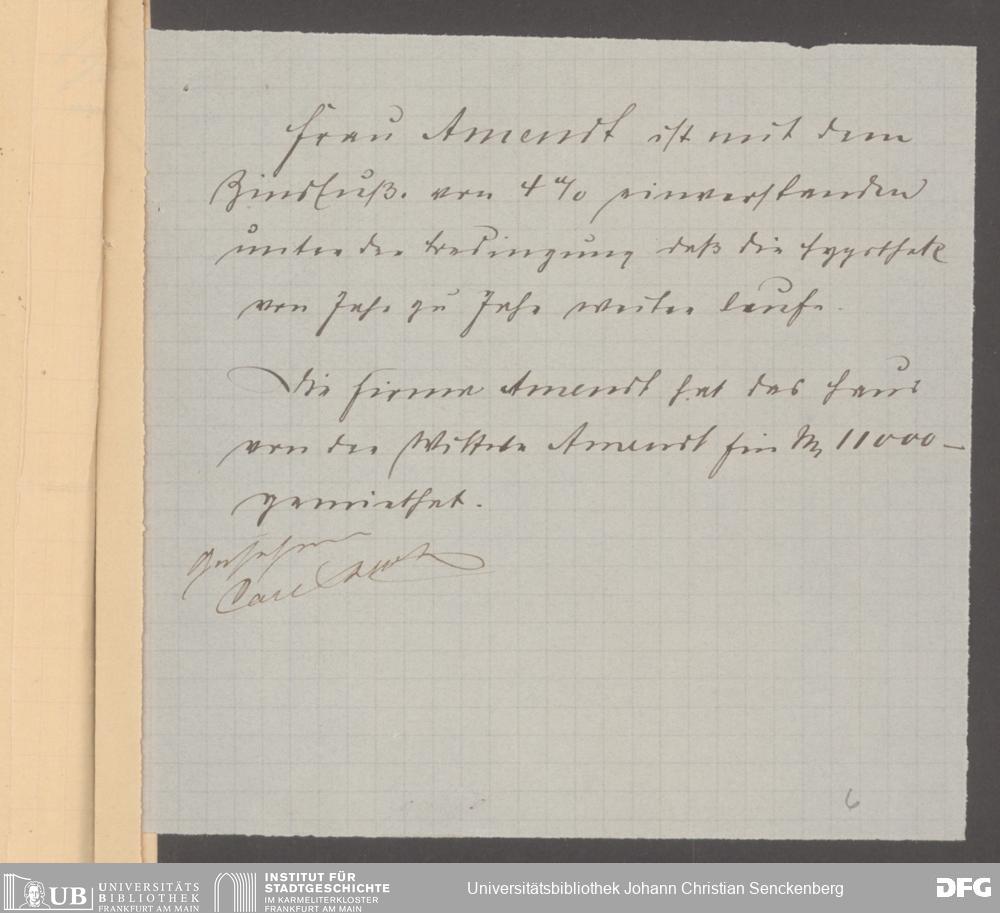 Frau Amendt ist mit dem
Zinsfuß. von 4 % einverstanden
unter der Bedingung daß die Hypothek
von Jahr zu Jahr weiter laufe.
Die Firma Amendt hat das Haus
von der Wittwe Amendt für M 11000 –
gemiethet.
Gesehen
Carl
6
UB UNIVERSITÄTS
BIBLIOTHEK
FRANKFURT AM MAIN
INSTITUT FÜR
STADTGESCHICHTE
IM KARMELITERKLOSTER
FRANKFURT AM MAIN
Universitätsbibliothek Johann Christian Senckenberg
DFG